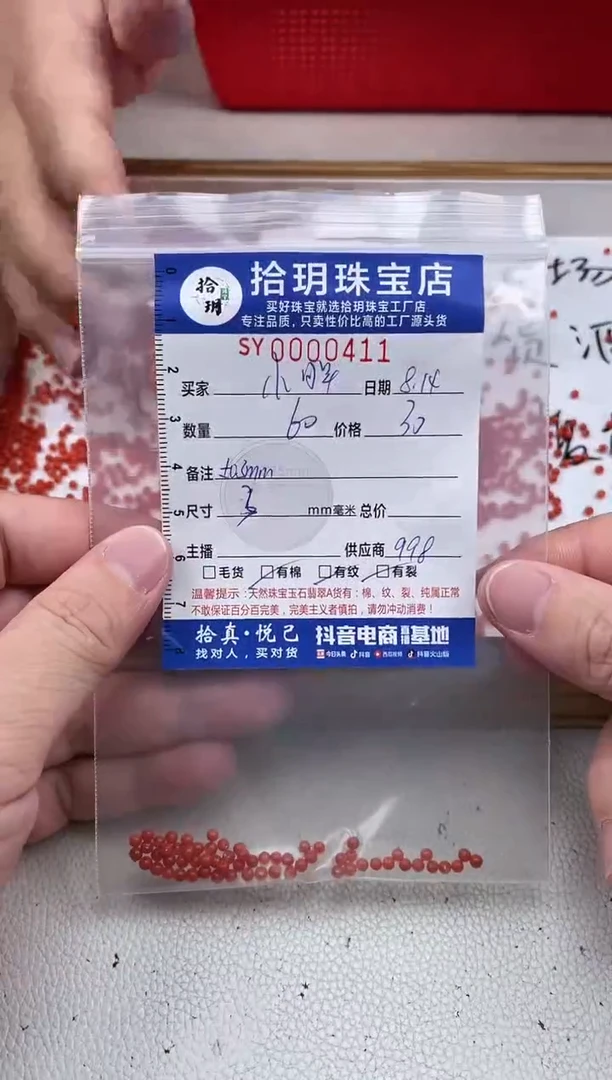 拾玥
拾玥珠宝店
买好珠宝就选拾玥珠宝工厂店
专注品质，只卖性价比高的工厂源头货
SY0000411
买家 小 日期 8.14
数量 60 价格 30
备注 ±0.3mm
尺寸 3 mm毫米 总价
主播 供应商 998
毛货 有棉 有纹 有裂
温馨提示：天然珠宝玉石翡翠A货有：棉、纹、裂、纯属正常
不敢保证百分百完美，完美主义者慎拍，请勿冲动消费！
拾真·悦己 抖音电商 基地
找对人，买对货 今日头条 抖音 西瓜视频 抖音火山版
0 1 2 3 4 5 6 7 8